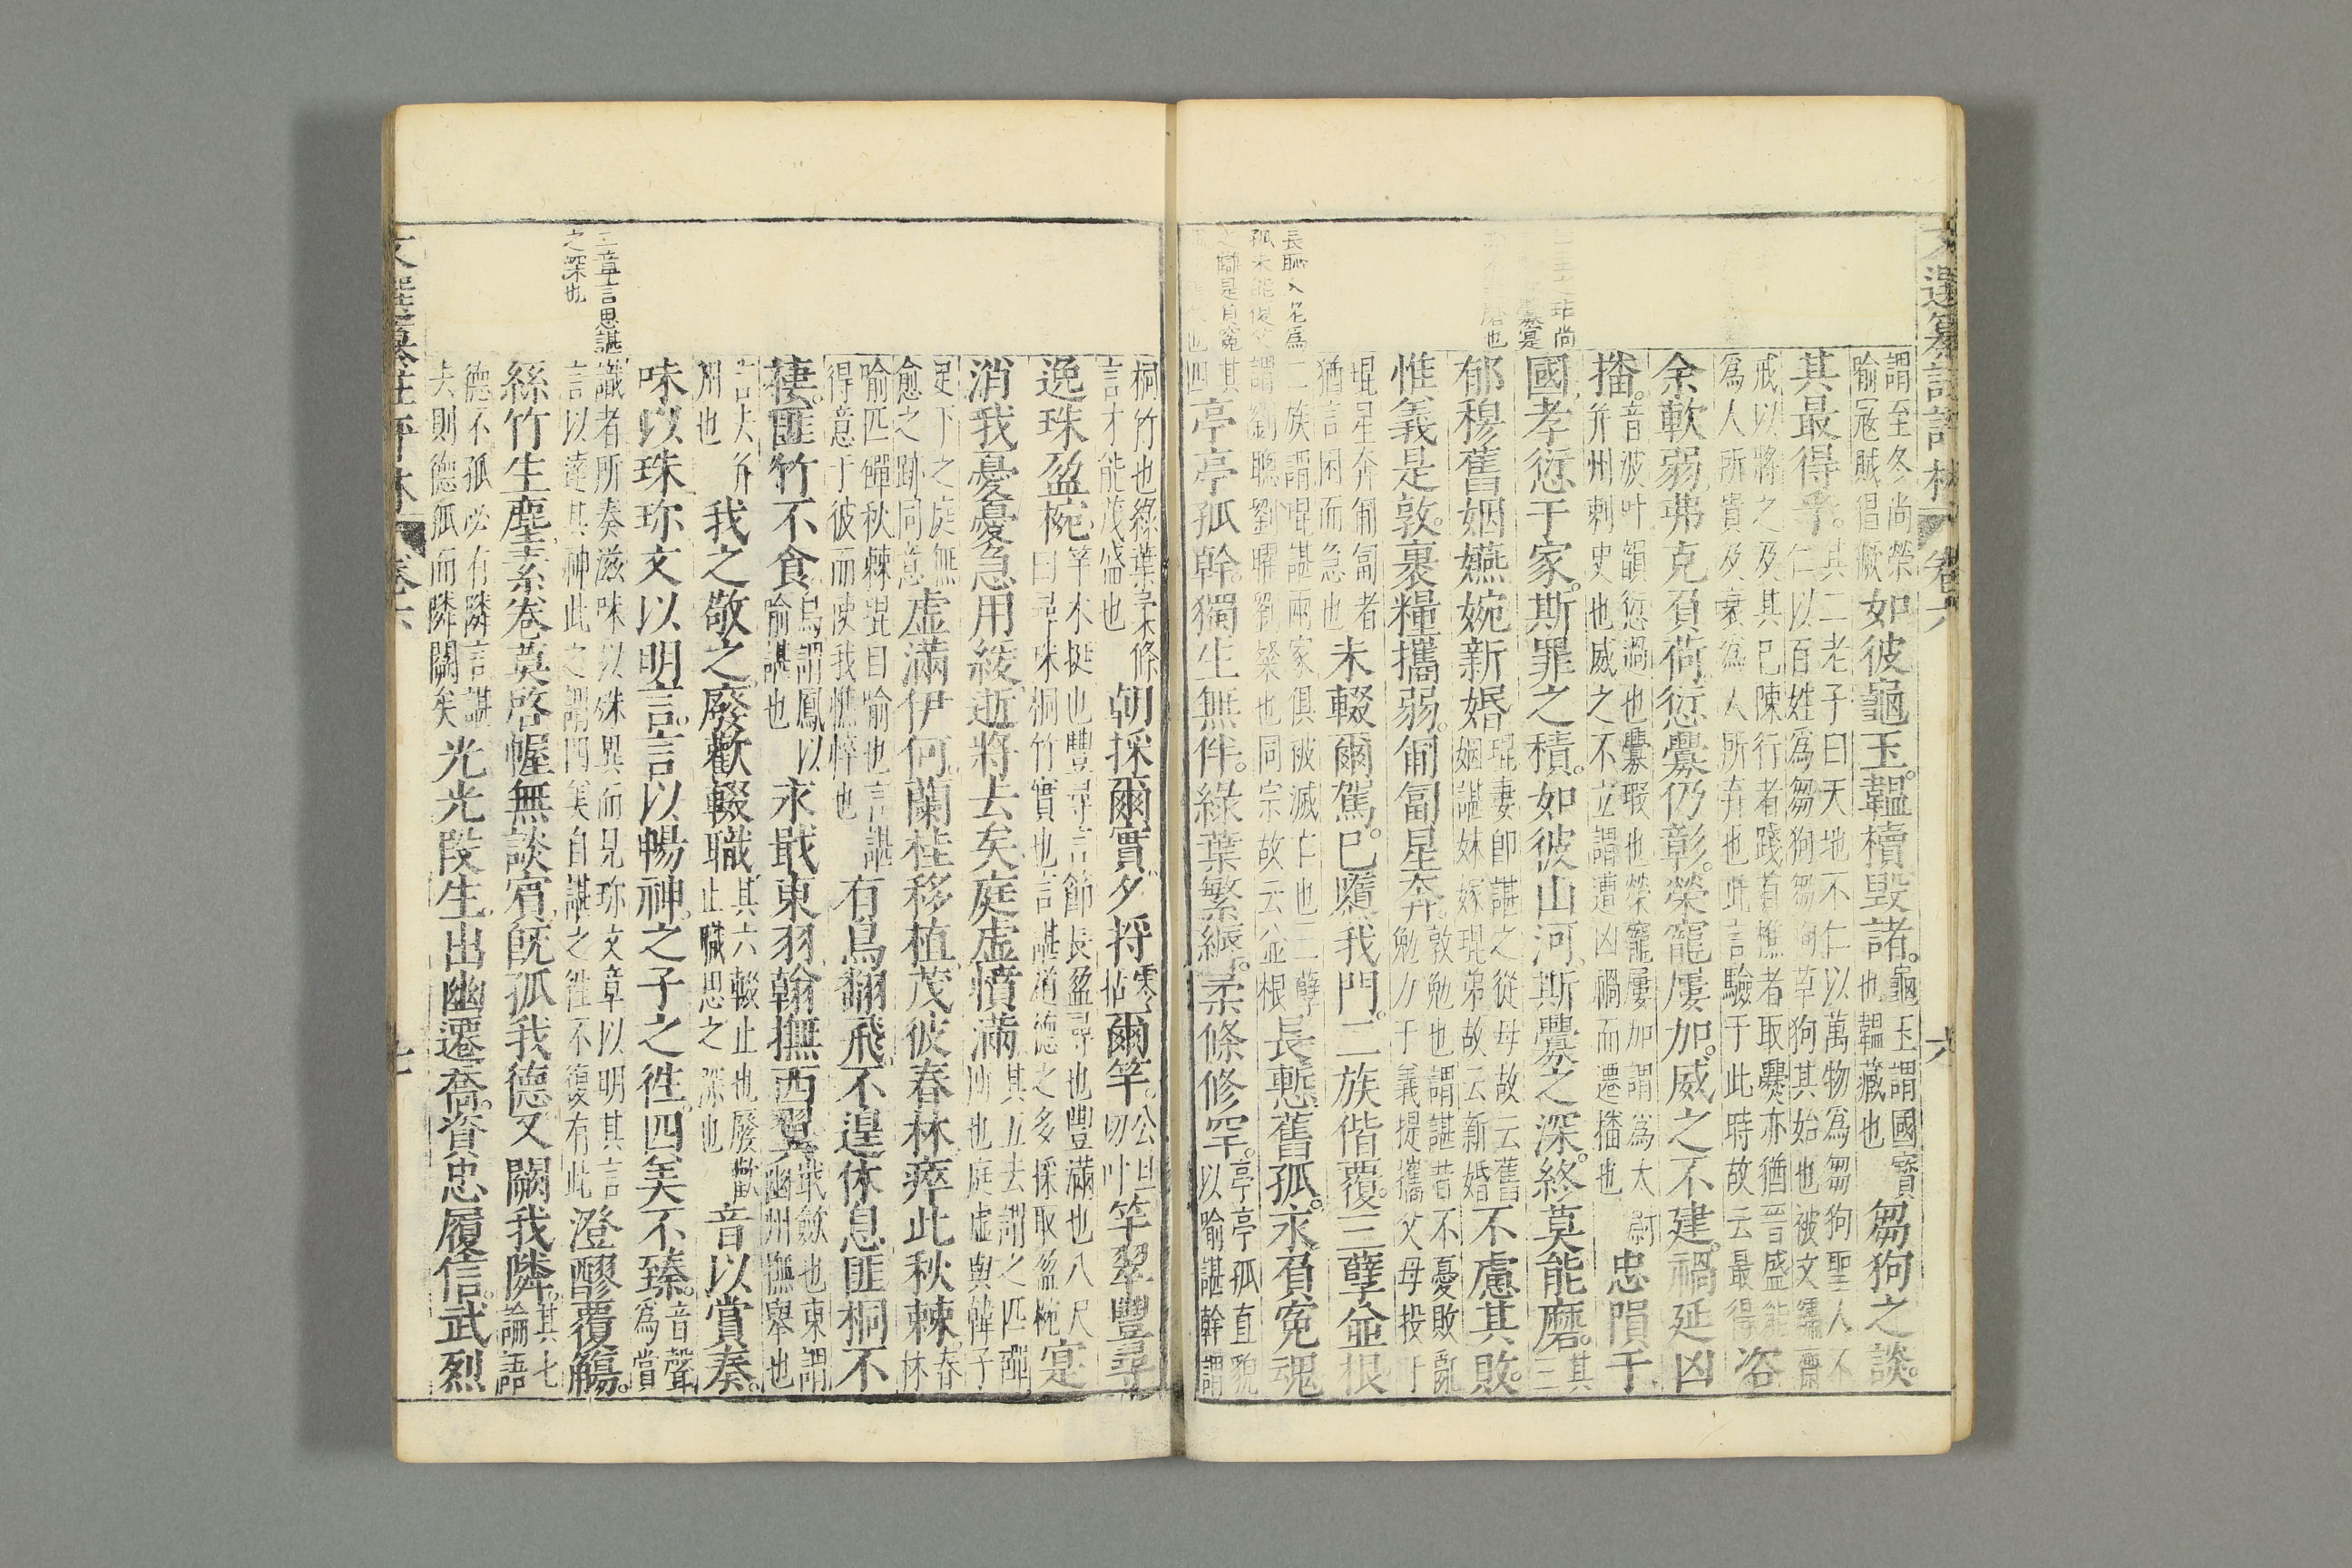 文選纂註評林 卷六 六
謂至冬尚榮
喻寇賊倡厥
如彼龜玉。韞櫝毀諸。
龜玉謂國寶
也韞藏也
芻狗之談。
其最得乎。
其二老子曰天地不仁以萬物為芻狗聖人不
仁以百姓為芻狗芻狗草狗其始也被文繡齋
戒以將之及其已陳行者踐首樵者取爨亦猶晋盛能
為人所貴及衰為人所弃也此言驗于此時故云最得
咨
余軟弱弗克負荷愆釁仍彰。榮寵屢加。威之不建。禍延凶
播。
音波叶韻愆過也釁瑕也榮寵屢加謂為大尉
并州刺史也威之不立謂遭凶禍而遷播也
忠隕于
國孝愆于家。斯罪之積。如彼山河斯釁之深。終莫能磨。
其
三
郁穆舊姻嬿婉新婚
琨妻即諶之從母故云舊
姻諶妹嫁琨弟故云新婚
不慮其敗。
惟義是敦。裹糧攜弱。匍匐星奔。
敦勉也謂諶昔不憂敗亂
勉力于義提攜父母投于
琨星奔匍匐者
猶言困而急也
未輟爾駕。已隳我門。二族偕覆。三孽並根
長恥入名為
孤未能復父
二族謂琨諶兩家俱被滅亡也三孽
謂劉聰劉曜劉粲也同宗故云並根
長慙舊孤。永負寃魂
其
四
亭亭孤幹。獨生無伴。綠葉繁縟。柔條修罕。
亭亭孤直貌
以喻諶幹謂
桐竹也綠葉柔條
言才能茂盛也
朝採爾實夕捋
霓
拈
爾竿。
公旦
切叶
竿翠豐尋
逸珠盈椀
竿木挺也豐尋言節長盈尋也豐滿也八尺
曰尋珠桐竹實也言諶道德之多採取盈椀
寔
消我憂憂急用緩逝將去矣庭虛憤滿
其五去謂之匹磾
所也庭虛與幃子
足下之庭無
愈之跡同意
虛滿伊何。蘭桂移植茂彼春林瘁此秋棘
春
林
喻匹磾秋棘琨自喻也言諶
得意于彼而使我憔悴也
有鳥翻飛不遑休息匪桐不
棲。匪竹不食
鳥謂鳳以
喻諶也
永戢東羽翰撫西翼
戢斂也東謂
幽州撫舉也
言去弁
州也
我之敬之廢歡輟職
其六輟止也廢歡
止職思之深也
音以賞奏。
味以珠珎文以明言。言以暢神之子之徃四美不臻。
音聲
為賞
三章言思諶
之深也
識者所奏滋味以殊異而見珎文章以明其言
言以達其神此之謂四美自諶之徃不復有此
澄醪覆觴。
絲竹生塵素卷莫啓幄無談賓旣孤我德又闕我隣。
其七
論語
德不孤必有隣言諶
去則德孤而隣闕矣
光光叚生出幽遷喬。資忠履信。武烈
文選纂註評林 卷六 七